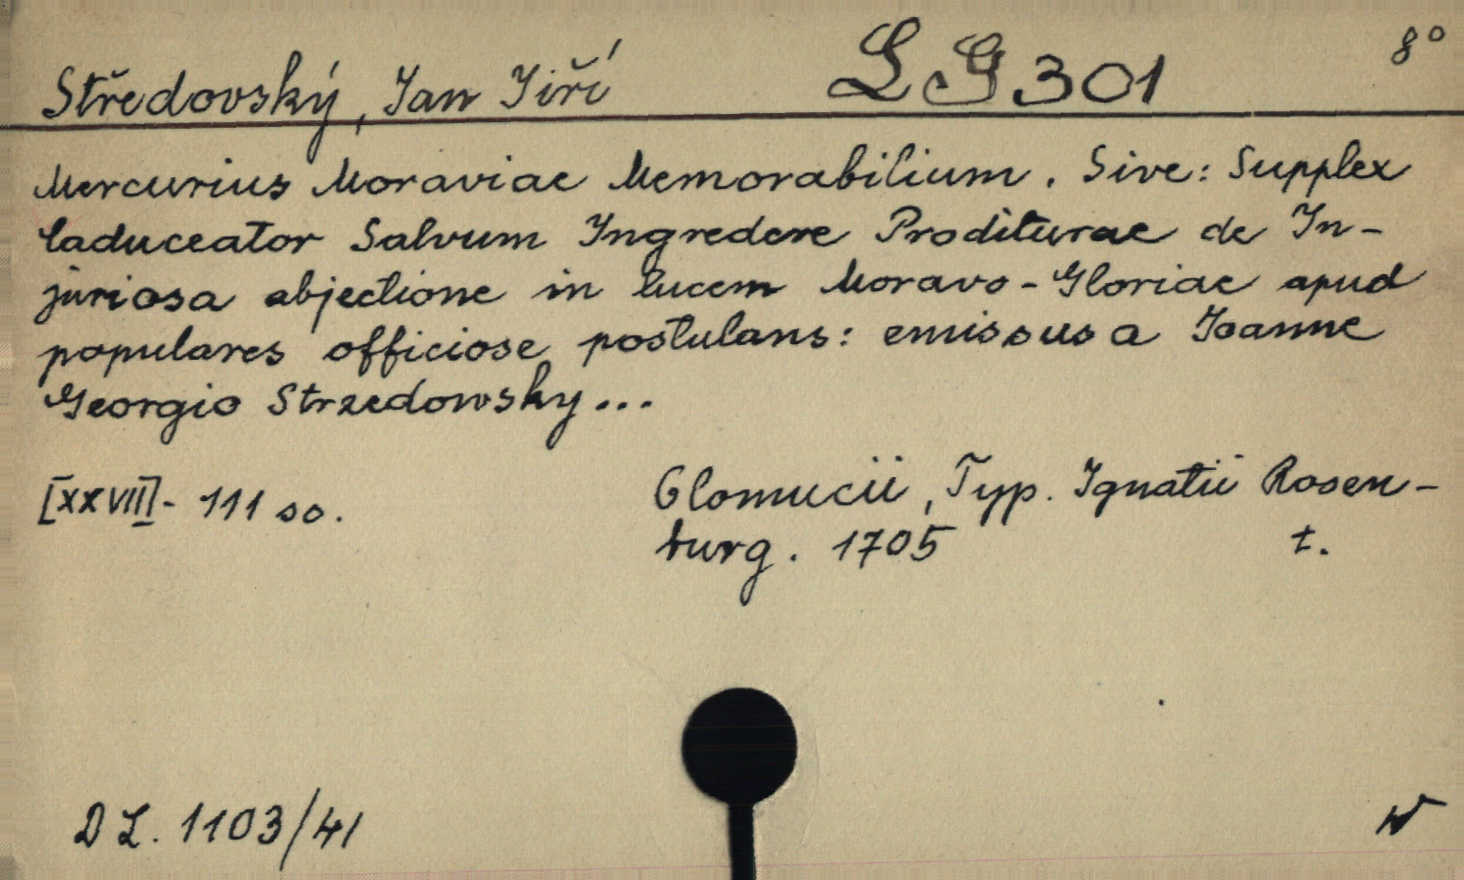 Středovský, Jan Jiří LG 301 8°
Mercurius Moraviae Memorabilium. Sive: Supplex
Caduceator Salvum Ingredere Proditurae de In-
juriosa abjectione in lucem Moravo-Gloriae apud
populares officiose postulans: emissus a Ioanne
Georgio Strzedowsky...
[XXVII]- 111 so. Olomucii, Typ. Ignatii Rosen-
burg. 1705 t.
D L. 1103/41 W